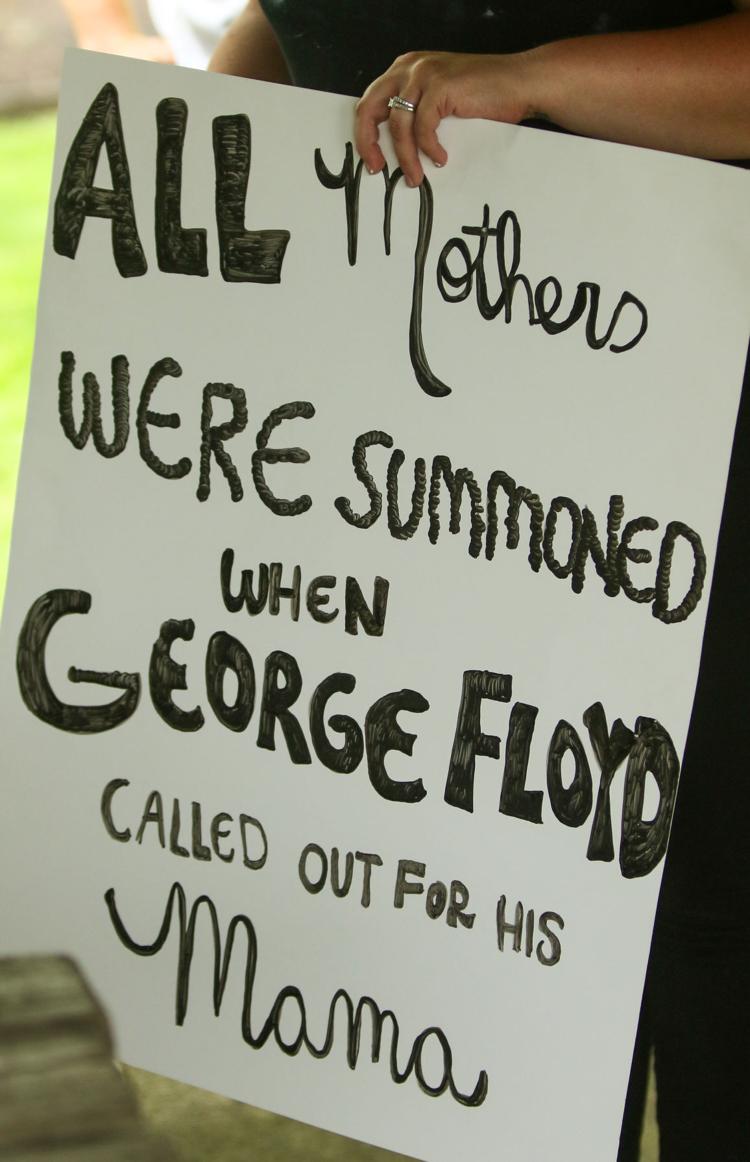 ALL Mothers
WERE SUMMONED
WHEN
GEORGE FLOYD
CALLED OUT FOR HIS
Mama